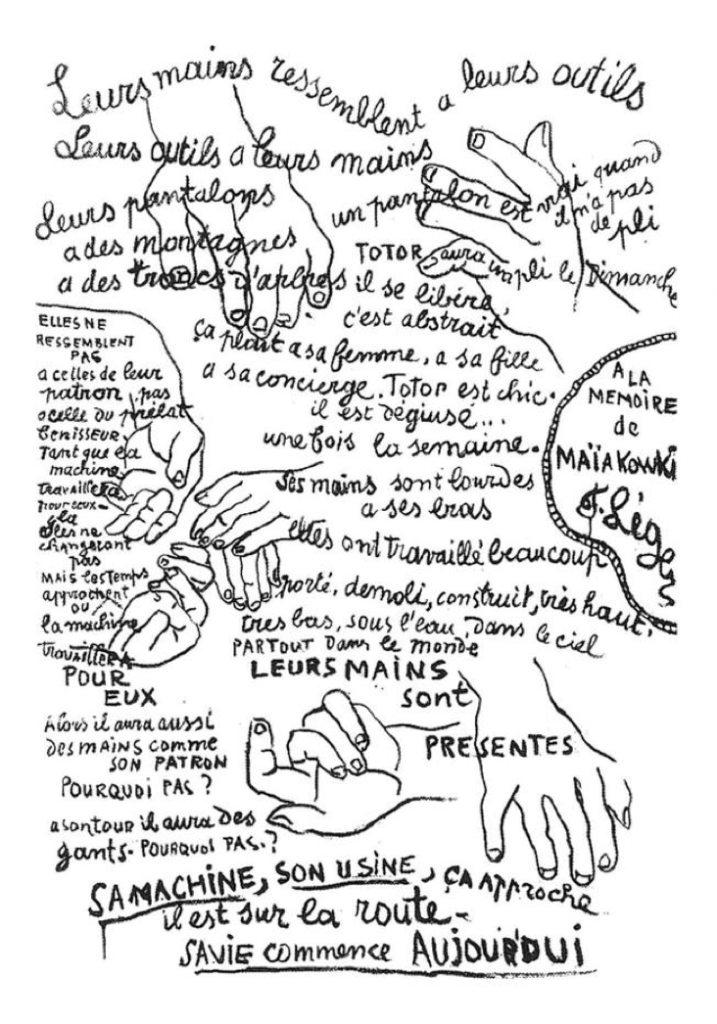 Leurs mains ressemblent a leurs outils
Leurs outils a leurs mains
Leurs pantalons
a des montagnes
a des troncs d'arbres
un pantalon est vrai quand
il n'a pas
de pli
TOTOR aura un pli le Dimanche
il se libére,
c'est abstrait
ça plait a sa femme, a sa fille
a sa concierge. Totor est chic.
il est dégiusé...
une fois la semaine.
Ses mains sont lourdes
a ses bras
elles ont travaillé beaucoup
porté, demoli, construit, très haut,
tres bas, sous l'eau, dans le ciel
PARTOUT Dans le monde
LEURS MAINS
sont
PRESENTES
A LA
MEMOIRE
de
MAÏAKOWKI
F. Léger
ELLES NE
RESSEMBLENT
PAS
a celles de leur
patron, pas
a celle du prélat
Benisseur.
Tant que la
machine
travaillera
pour eux-
elles ne
changeront
pas
MAIS les Temps
approchent
ou
la machine
travaillERA
POUR
EUX
Alors il aura aussi
des mAins comme
SON PATRON
POURQUOI PAS ?
a son tour il aura des
gants. POURQUOI PAS.?
SA MACHINE, SON USINE, ÇA APProche
il est sur la route-
SA VIE commence AUJOURDUI